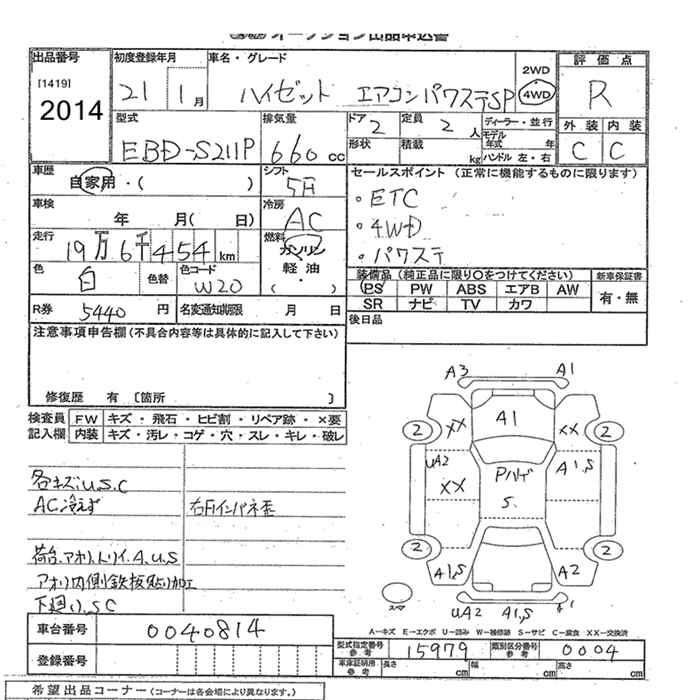 オークション出品申込書
出品番号
[1419]
2014
初度登録年月
21 1月
車名・グレード
ハイゼット エアコンパワステSP
2WD
4WD
評価点
R
型式
EBD-S211P
排気量
660 cc
ドア 2
定員 2 人
ディーラー・並行
モデル年式 年
形状
積載 kg
ハンドル 左・右
外装 内装
C C
車歴
自家用・( )
シフト
5F
セールスポイント (正常に機能するものに限ります)
・ETC
・4WD
・パワステ
車検
年 月( 日)
冷房
AC
走行
19万6千454km
燃料
ガソリン
軽油
( ・ )
色
白
色替
色コード
W20
装備品(純正品に限り○をつけてください)
新車保証書
PS PW ABS エアB AW
SR ナビ TV カワ
有・無
R券 5440 円
名変通知期限 月 日
後日品
注意事項申告欄(不具合内容等は具体的に記入して下さい)
修復歴 有 [箇所 ]
検査員記入欄
FW キズ・飛石・ヒビ割・リペア跡・×要
内装 キズ・汚レ・コゲ・穴・スレ・キレ・破レ
各キズ.U.S.C
AC冷えず 右Fインパネ歪
荷台.アオリ.トリイ.A.U.S
アオリ内側鉄板貼り加工
下廻り.SC
A3 A1
2 XX A1 XX 2
UA2 XX Pハゲ S. A1,S
2 A1,S A2 2
スマ
UA2 A1,S
A-キズ E-エクボ U-凹み W-補修跡 S-サビ C-腐食 XX-交換済
車台番号 0040814
登録番号
型式指定番号 参考 15979
類別区分番号 参考 0004
車庫証明用 参考 長さ cm 幅 cm 高さ cm
希望出品コーナー(コーナーは各会場により異なります。)